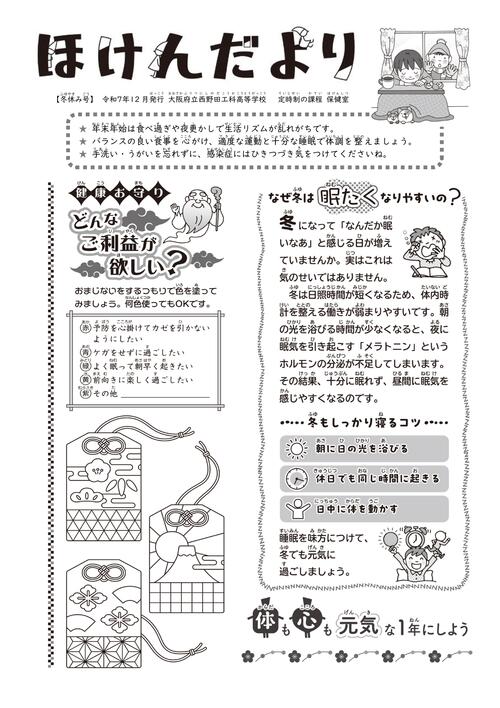 ほけんだより
【冬休み号】 令和7年12月発行 大阪府立西野田工科高等学校 定時制の課程 保健室
★ 年末年始は食べ過ぎや夜更かしで生活リズムが乱れがちです。
★ バランスの良い食事を心がけ、適度な運動と十分な睡眠で体調を整えましょう。
★ 手洗い・うがいを忘れずに、感染症にはひきつづき気をつけてくださいね。
健康お守り
どんな
ご利益が
欲しい?
おまじないをするつもりで色を塗って
みましょう。何色使ってもOKです。
赤 予防を心掛けてカゼを引かない
ようにしたい
青 ケガをせずに過ごしたい
緑 よく眠って朝早く起きたい
黄 前向きに楽しく過ごしたい
紫 その他
なぜ冬は眠たくなりやすいの?
冬になって「なんだか眠
いなあ」と感じる日が増え
ていませんか。実はこれは
気のせいではありません。
冬は日照時間が短くなるため、体内時
計を整える働きが弱まりやすいです。朝
の光を浴びる時間が少なくなると、夜に
眠気を引き起こす「メラトニン」という
ホルモンの分泌が不足してしまいます。
その結果、十分に眠れず、昼間に眠気を
感じやすくなるのです。
冬もしっかり寝るコツ
朝に日の光を浴びる
休日でも同じ時間に起きる
日中に体を動かす
睡眠を味方につけて、
冬でも元気に
過ごしましょう。
体も心も元気な1年にしよう